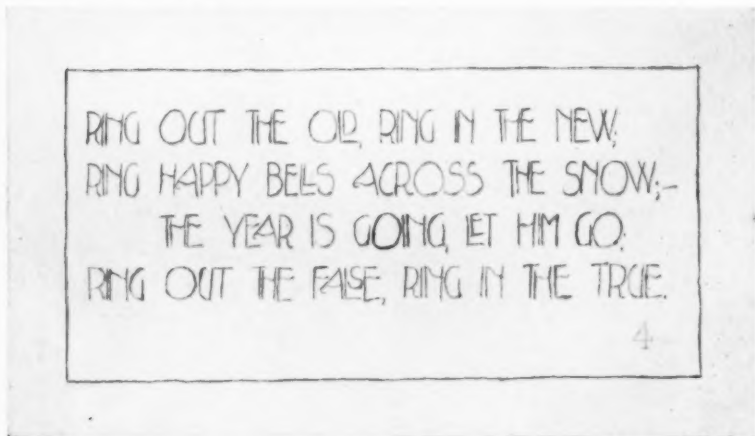 RING OUT THE OLD, RING IN THE NEW,
RING HAPPY BELLS ACROSS THE SNOW;–
THE YEAR IS GOING, LET HIM GO;
RING OUT THE FALSE, RING IN THE TRUE.
4